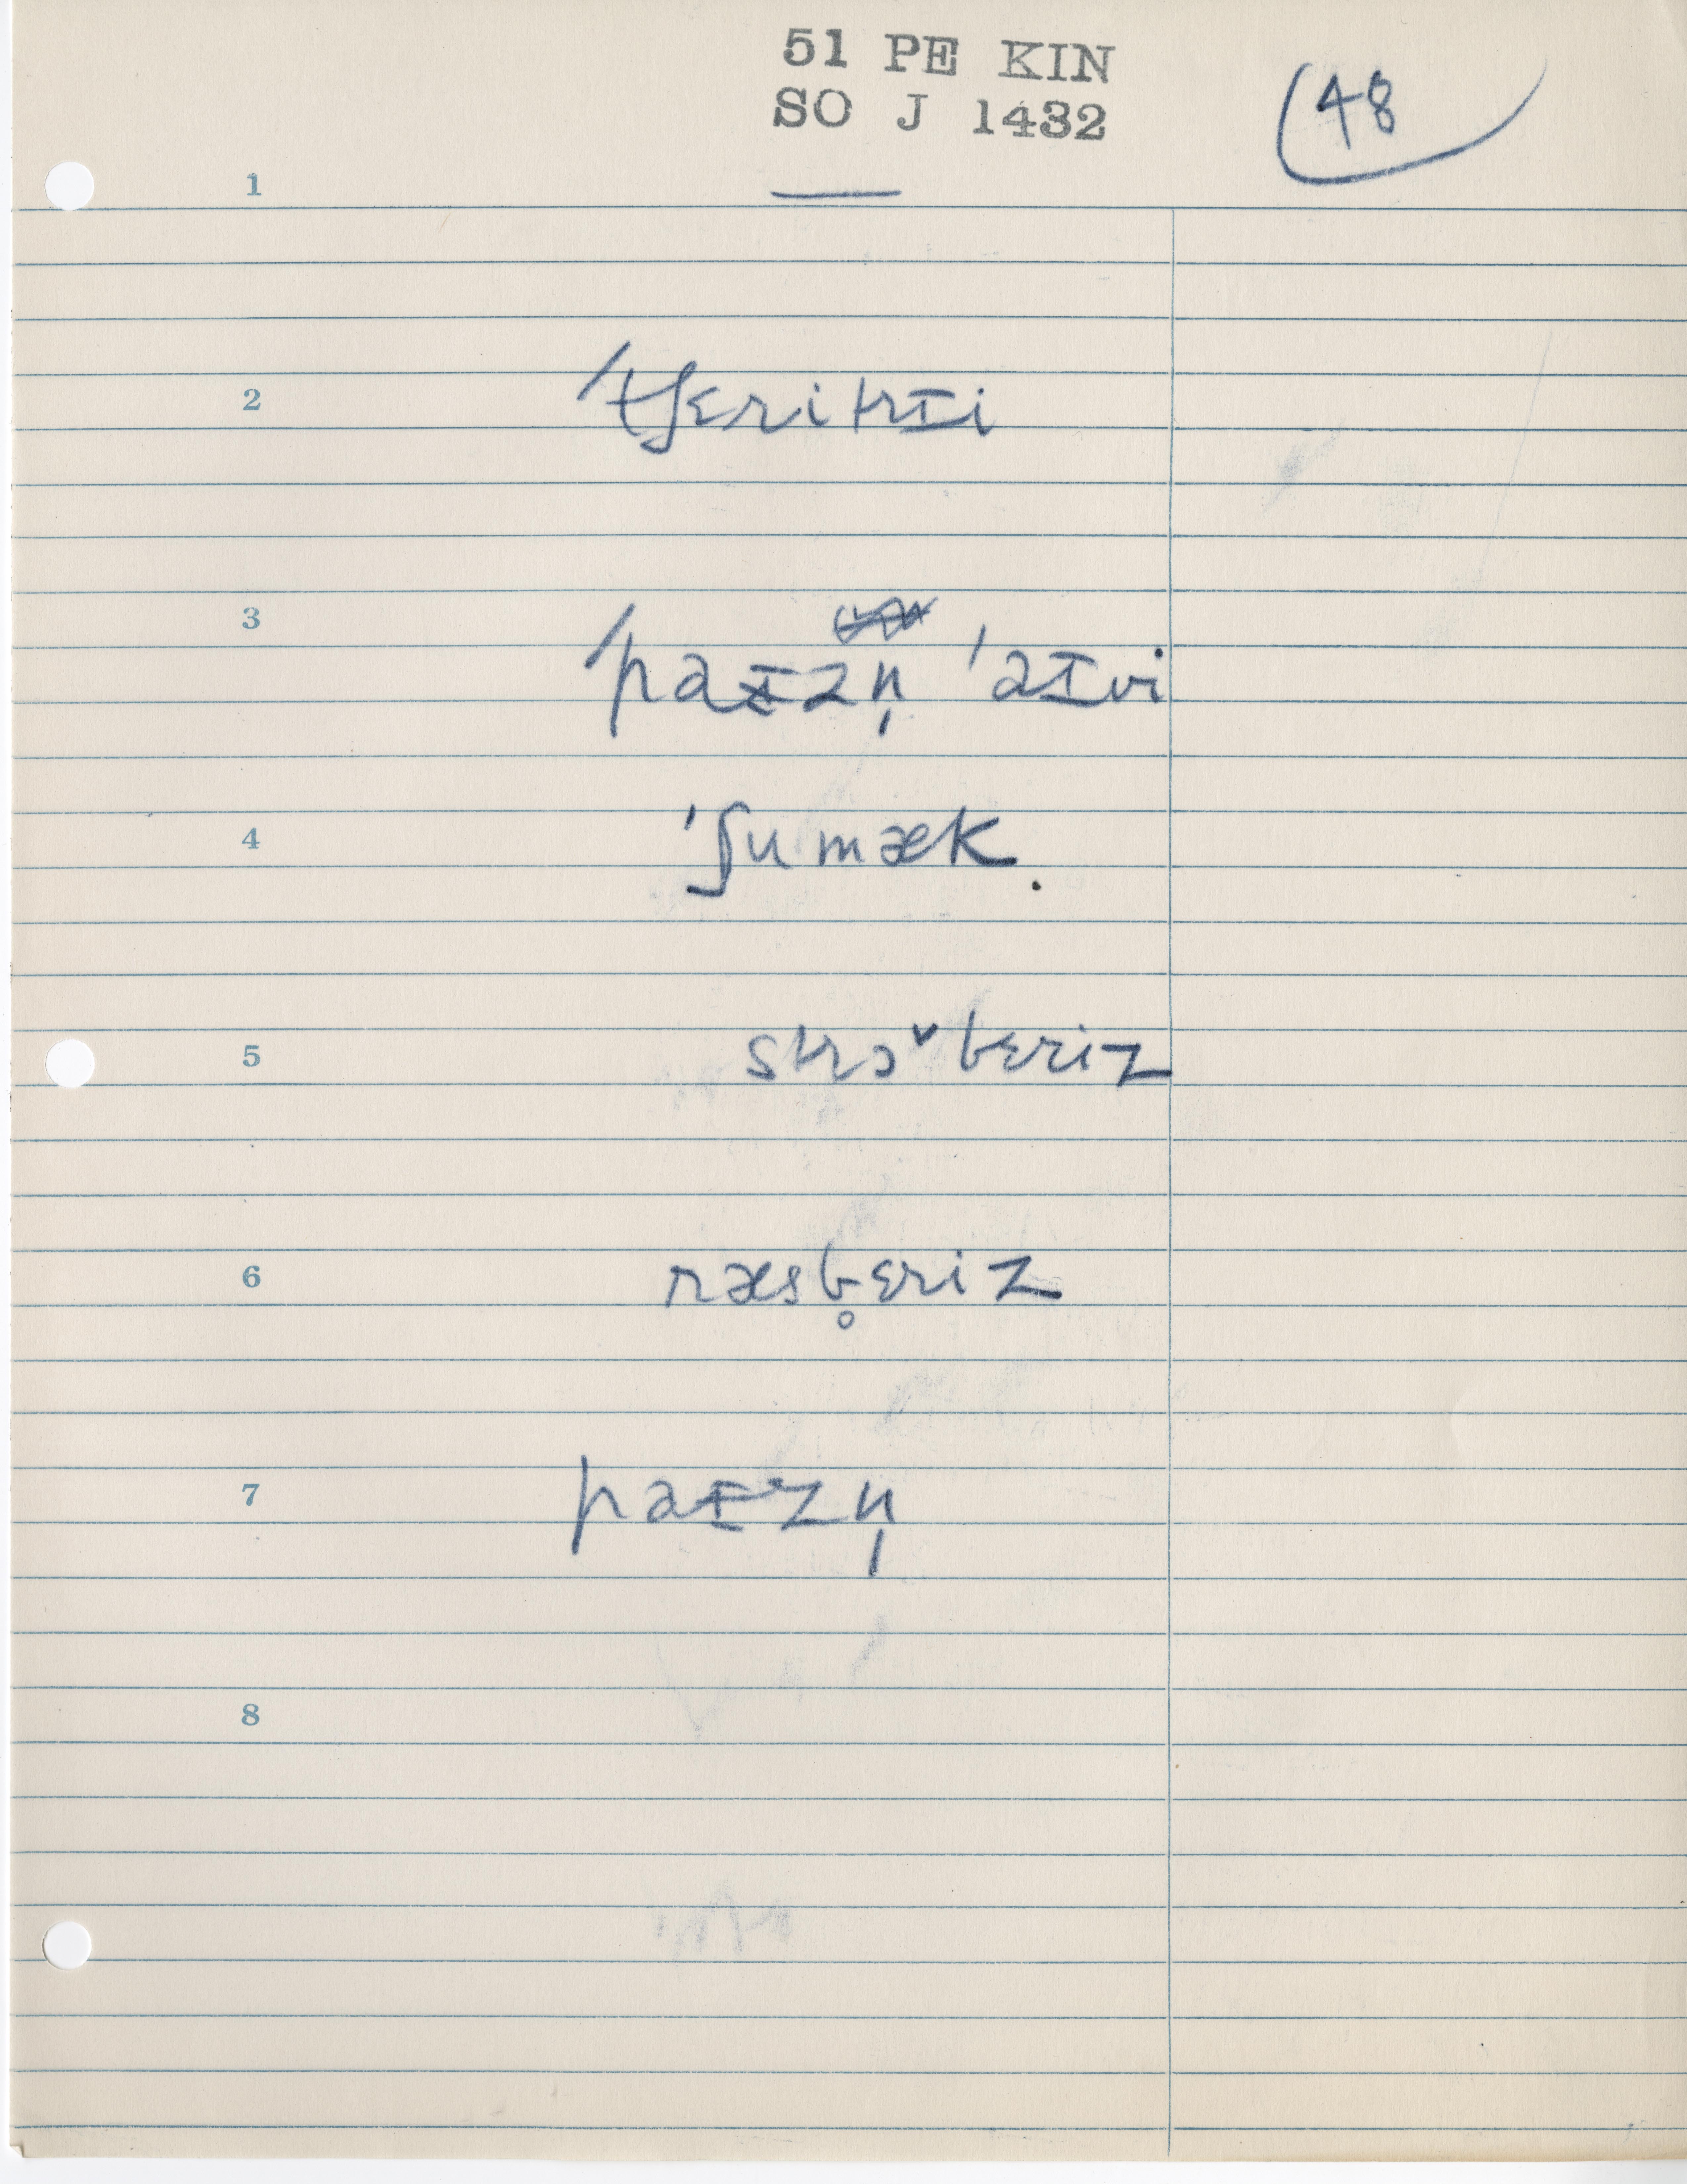 51 PE KIN
SO J 1432
48
1
2 ˈtʃɛri trɪi
3 ˈpaɪzn̩ ˈaɪvi
4 ˈʃumæk
5 strɔˇbɛriz
6 ræsb̥ɛriz
7 paɪzn̩
8